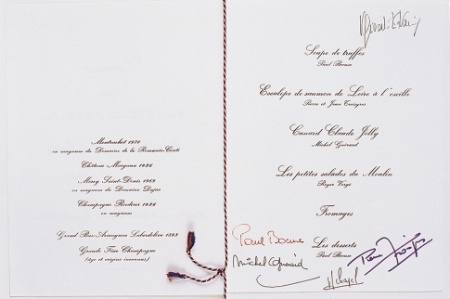 Montrachet 1970
en magnum du Domaine de la Romanée-Conti
Château Margaux 1926
Morey Saint-Denis 1969
en magnum du Domaine Dujac
Champagne Roederer 1926
en magnum
Grand Bas-Armagnac Laberdolive 1893
Grande Fine Champagne
Soupe de truffes
Paul Bocuse
Escalope de saumon de Loire à l'oseille
Pierre et Jean Troisgros
Canard Claude Jolly
Michel Guérard
Les petites salades du Moulin
Roger Vergé
Fromages
Les desserts
Paul Bocuse
Paul Bocuse
Michel Guérard